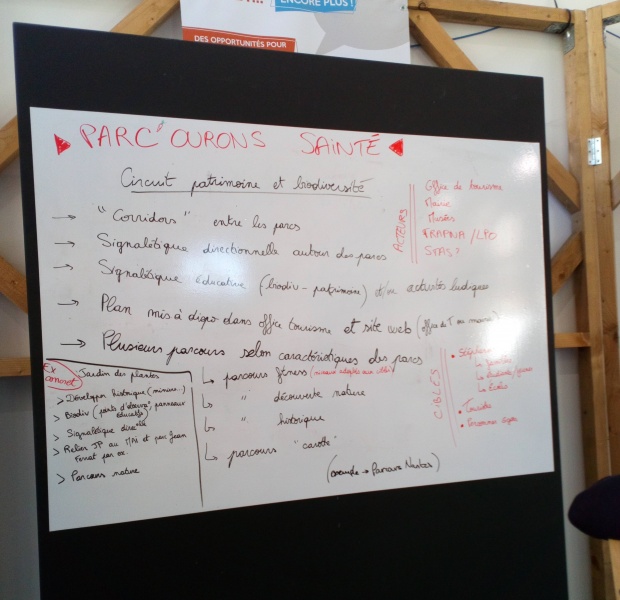 ENCORE PLUS !
DES OPPORTUNITÉS POUR
PARC'OURONS SAINTÉ
Circuit patrimoine et biodiversité
→ "Corridors" entre les parcs
→ Signalétique directionnelle autour des parcs
→ Signalétique éducative (biodiv - patrimoine) et/ou activités ludiques
→ Plan mis à dispo dans office tourisme et site web (office de T ou mairie)
→ Plusieurs parcours selon caractéristiques des parcs
↳ parcours fitness
↳ " découverte nature
↳ " historique
↳ parcours "carotte"
(exemple → Parcours Nantes)
ACTEURS
Office de tourisme
Mairie
Musées
FRAPNA / LPO
STAS ?
CIBLES
• Stéphanois
La famille
Les étudiants/jeunes
Les Écoles
• Touristes
• Personnes âgées
Ex concret
Jardin des plantes
> Développer historique (miniers...)
> Biodiv (points d'observ°, panneaux éducatifs)
> Signalétique direc^elle
> Relier JP au et parc Jean
Ferrat par ex.
> Parcours nature